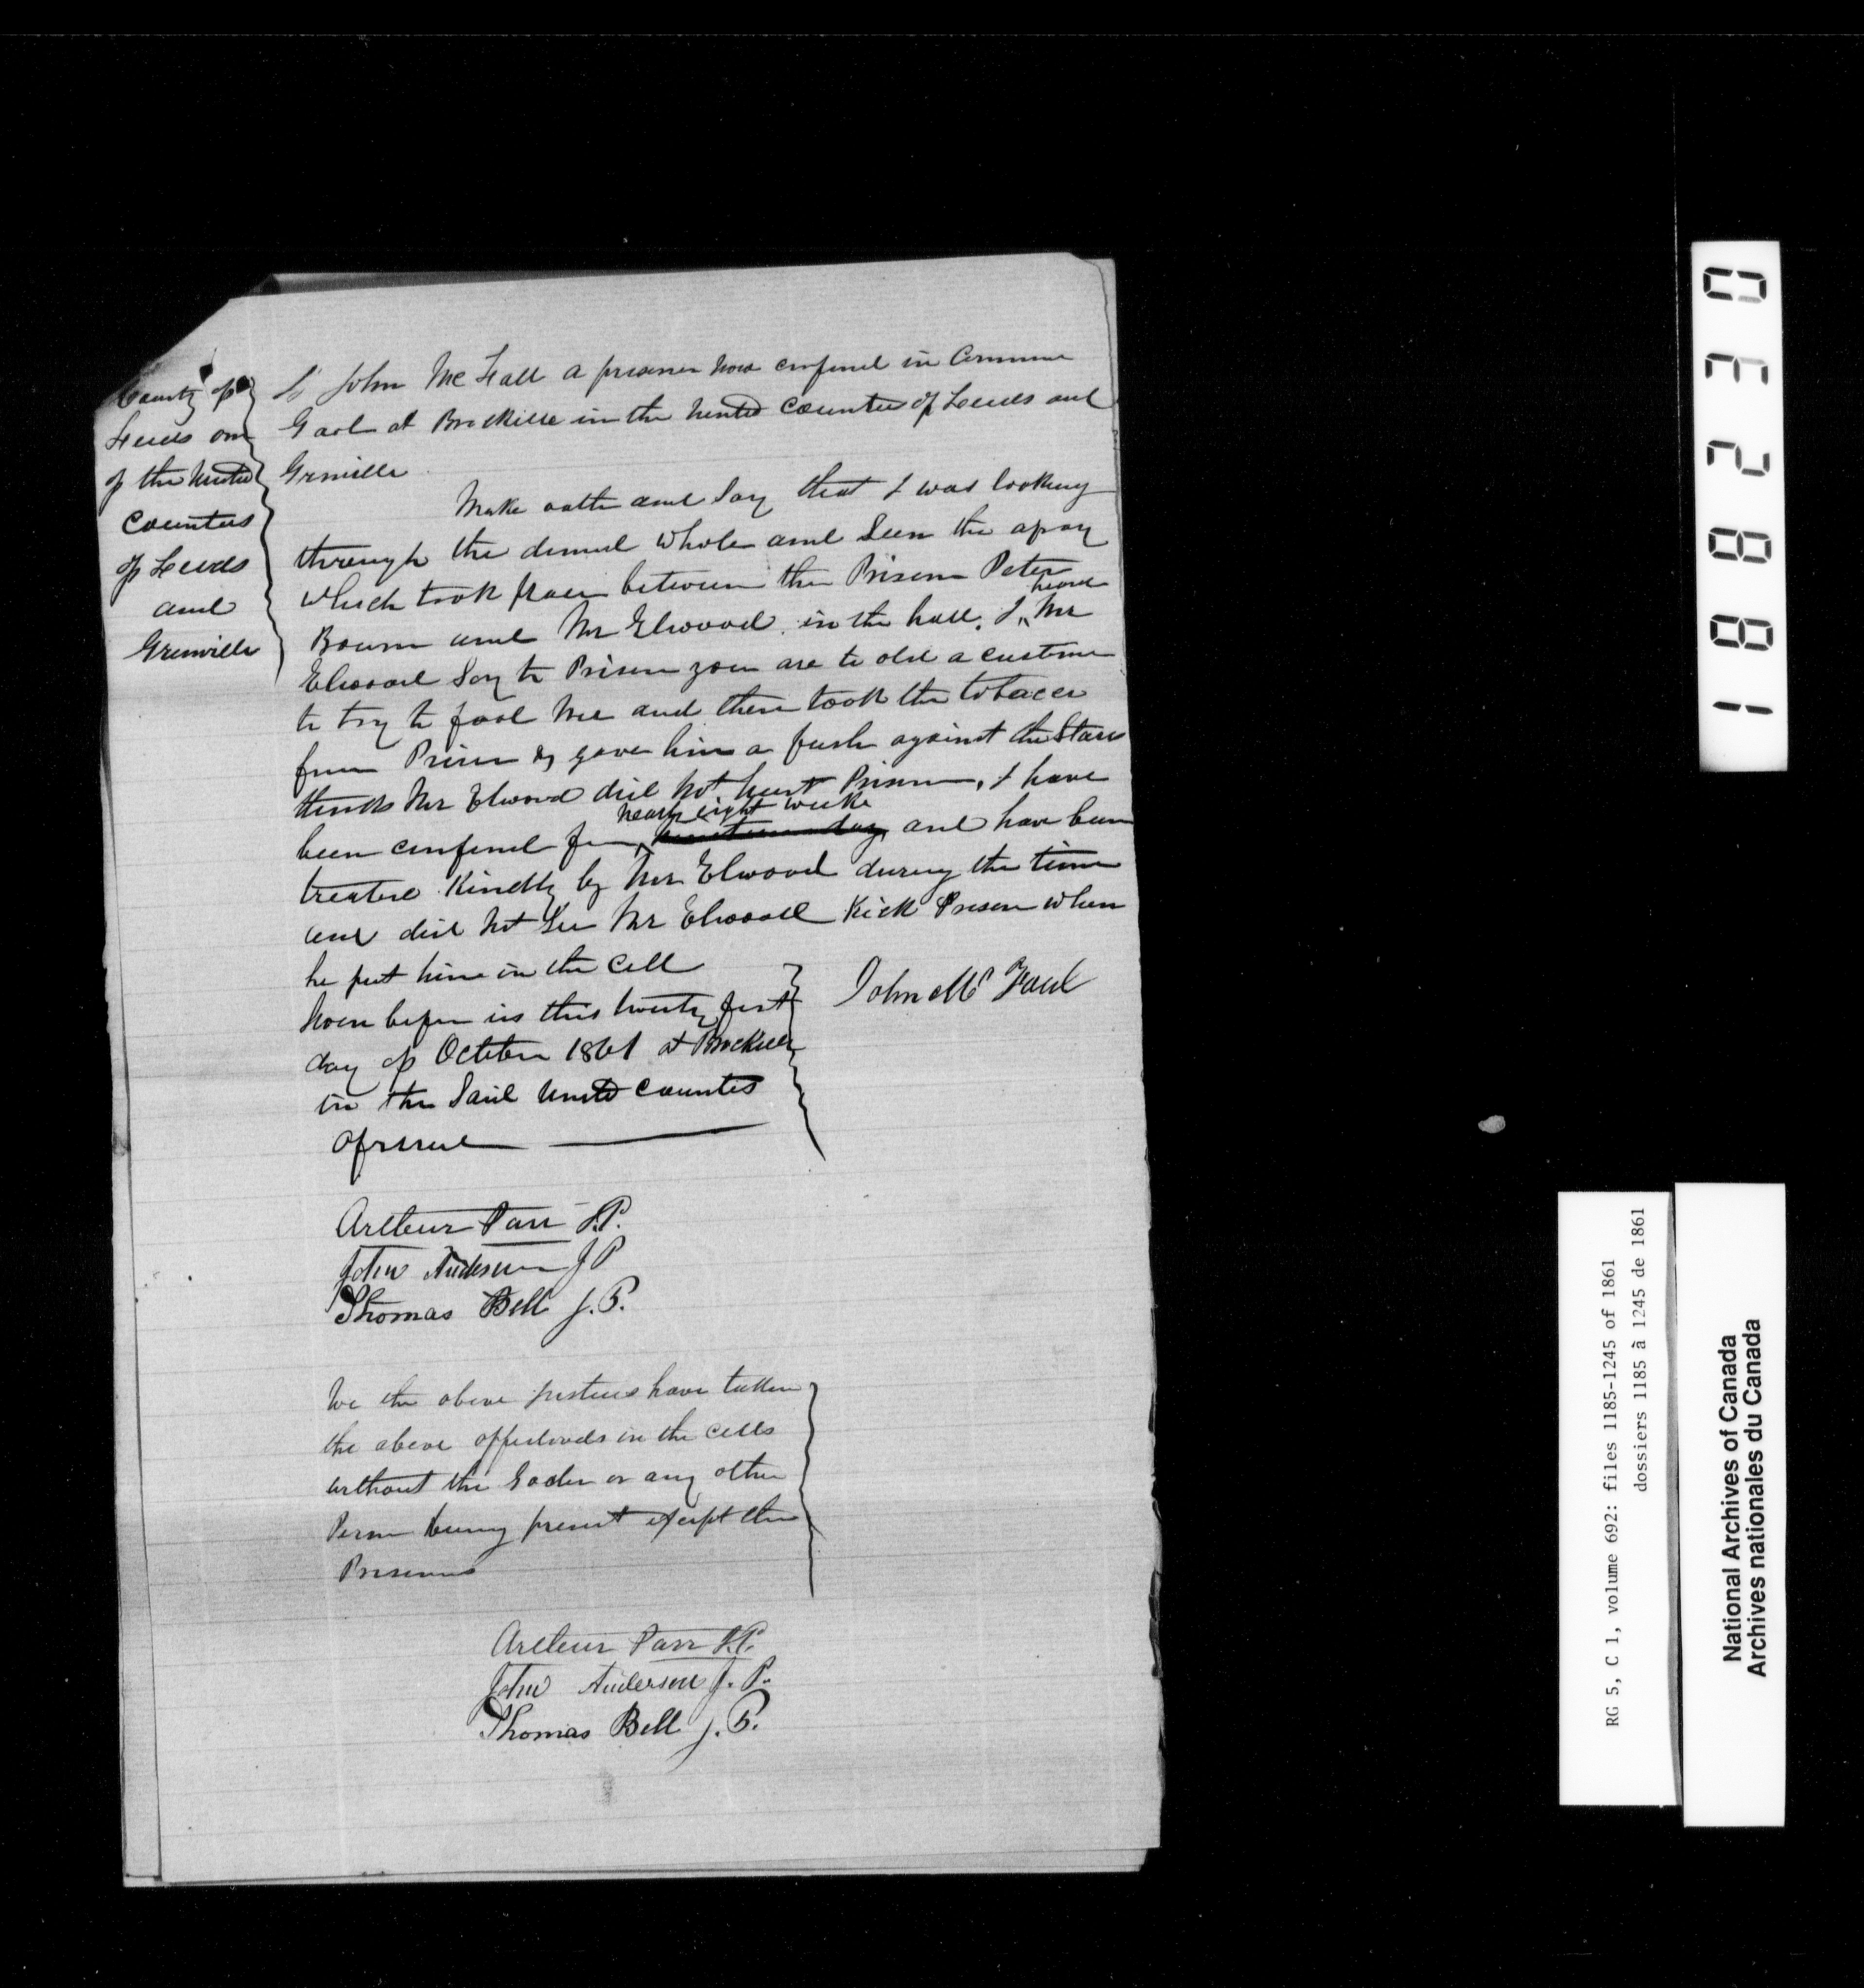 County of
Leeds one
of the United
Counties
of Leeds
and
Grenville
I John McFall a prisoner now confined in Common
Gaol at Brockville in the United Counties of Leeds and
Grenville
Make oath and Say that I was looking
through the whole and Seen the afray
which took place between the Prisoner Peter
Bourn and Mr Elwood in the hall. I heard Mr
Elwood Say to Prisoner you are to old a customer
to try to fool me and then took the tobacco
from Prisoner & gave him a push against the Stairs
thinks Mr Elwood did not hurt Prisoner, I have
been confined for nearly eight weeks and have been
treated Kindly by Mr Elwood during the time
and did not See Mr Elwood Kick Prisoner when
he put him in the Cell
John Mc Faul
Sworn before us this twenty first
day of October 1861 at Brockville
in the Said United Counties
aforesaid
Arthur Parr J.P.
John Anderson J P
Thomas Bell J.P.
We the above justices have taken
the above affidavids in the cells
without the Gaoler or any other
Person being present except the
Prisoners
Arthur Parr J.P.
John Anderson J.P.
Thomas Bell J.P.
188230
RG 5, C 1, volume 692: files 1185-1245 of 1861
dossiers 1185 à 1245 de 1861
National Archives of Canada
Archives nationales du Canada